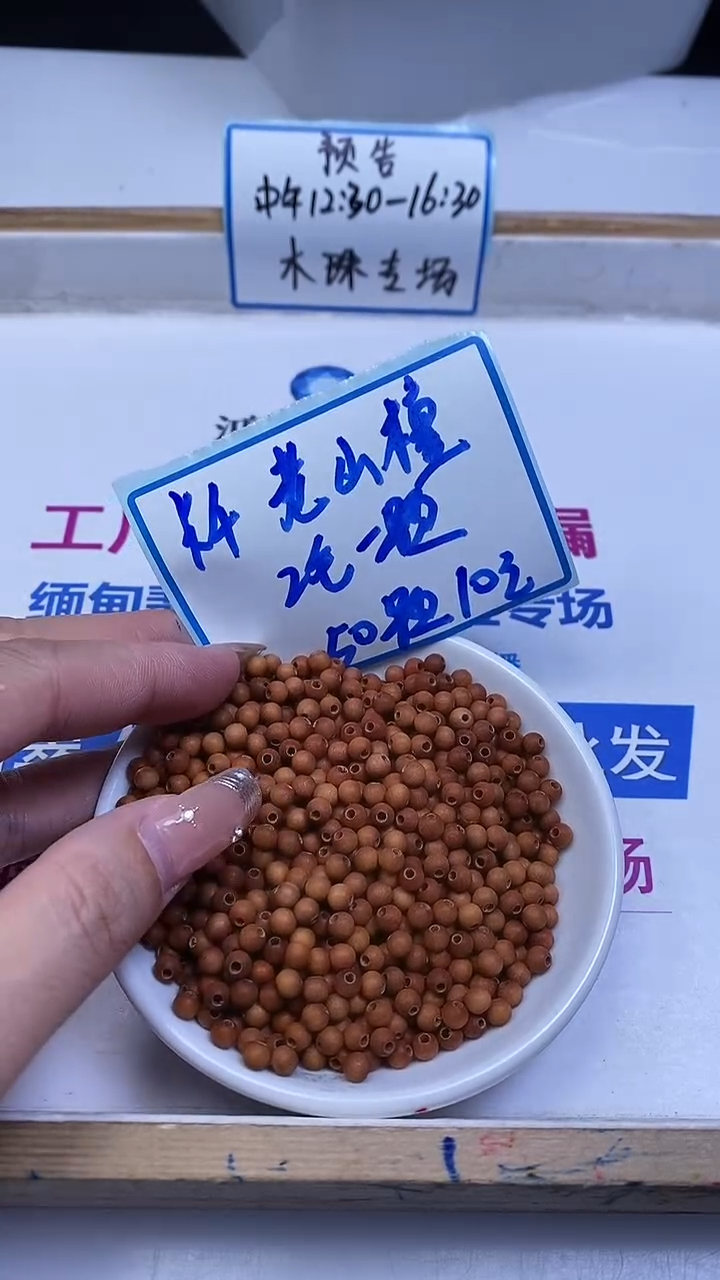 预告
中午12:30-16:30
木珠专场
老山檀
2毛一颗
50颗10元
工厂
漏
缅甸
专场
播
批发
场